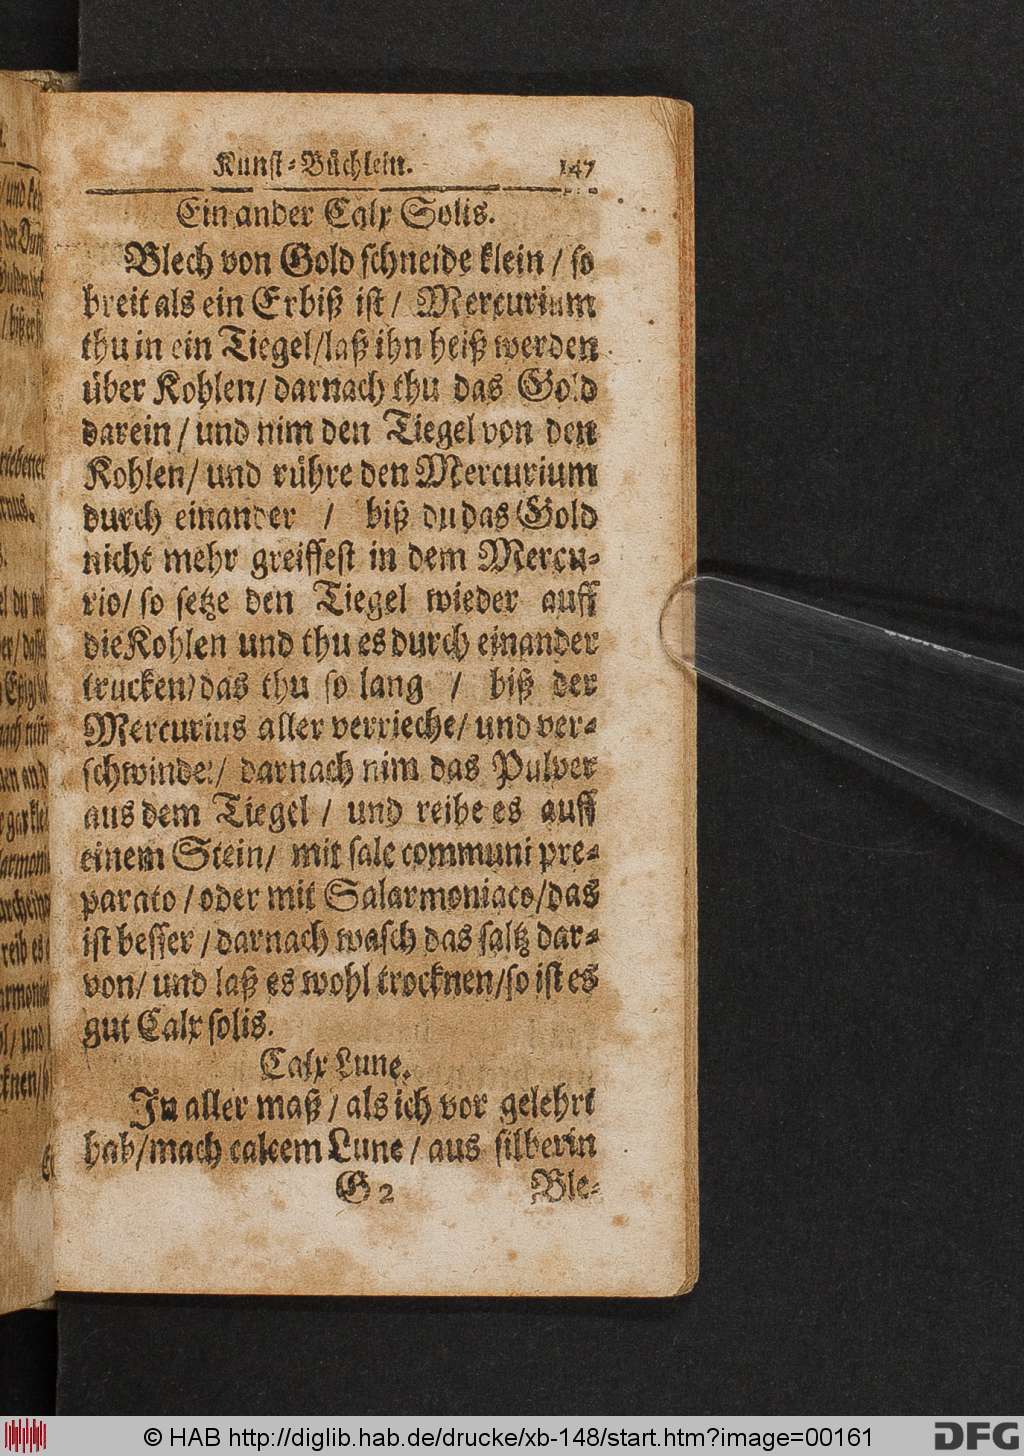 Kunst-Büchlein. 147
Ein ander Calx Solis.
Blech von Gold schneide klein / so
breit als ein Erbiß ist / Mercurium
thu in ein Tiegel/laß ihn heiß werden
über Kohlen/ darnach thu das Gold
darein / und nim den Tiegel von den
Kohlen/ und rühre den Mercurium
durch einander / biß du das Gold
nicht mehr greiffest in dem Mercu-
rio/ so setze den Tiegel wieder auff
die Kohlen und thu es durch einander
trucken/das thu so lang / biß der
Mercurius aller verrieche/ und ver-
schwindet/ darnach nim das Pulver
aus dem Tiegel / und reibe es auff
einem Stein/ mit sale communi pre-
parato / oder mit Salarmoniaco/das
ist besser / darnach wasch das saltz dar-
von/ und laß es wohl trocknen/so ist es
gut Calx solis.
Calx Lune.
In aller maß / als ich vor gelehrt
hab/mach calcem Lune / aus silberin
G 2 Ble-
© HAB http://diglib.hab.de/drucke/xb-148/start.htm?image=00161
DFG